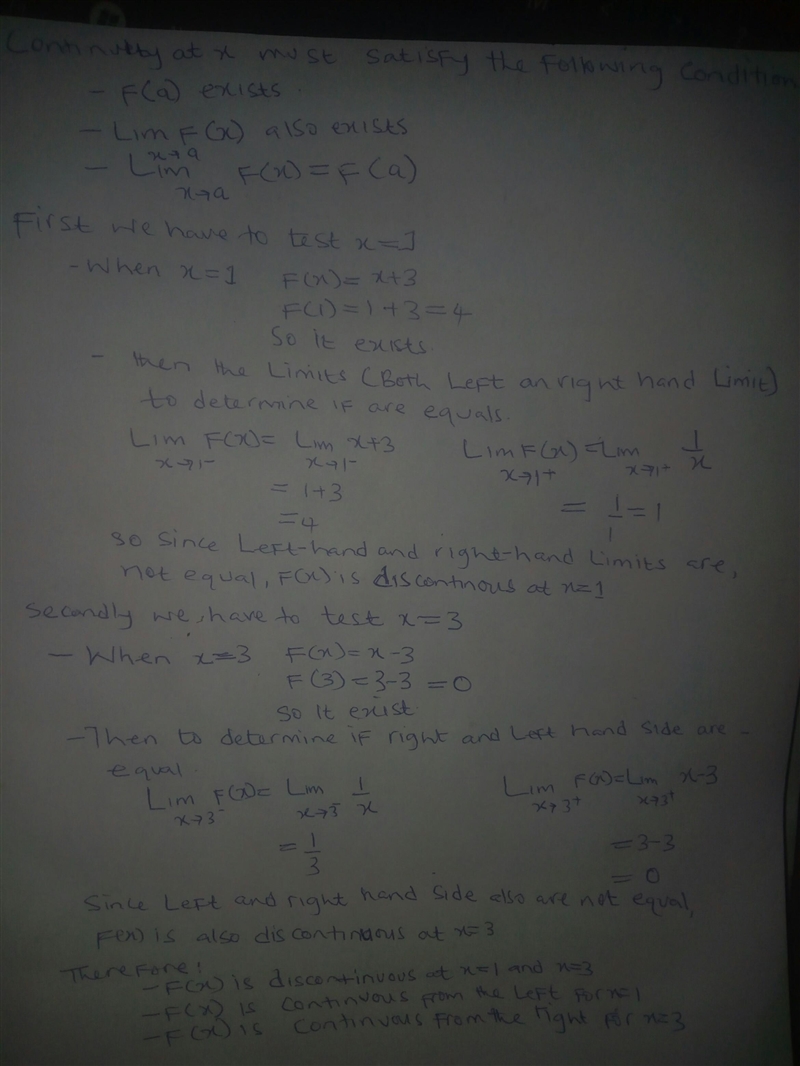 Continuity at x must satisfy the following condition
- F(a) exists.
- Lim F(x) also exists
x→a
- Lim F(x) = F(a)
x→a
First we have to test x=1
- When x=1 F(x) = x+3
F(1) = 1+3 = 4
So it exists.
- then the Limits (Both Left an right hand Limit)
to determine if are equals.
Lim F(x) = Lim x+3 Lim F(x) = Lim 1/x
x→1- x→1- x→1+ x→1+
= 1+3 = 1/1 = 1
= 4
so since Left-hand and right-hand Limits are,
not equal, F(x) is discontinous at x=1
Secondly we, have to test x=3
- When x=3 F(x) = x-3
F(3) = 3-3 = 0
So it exist
- Then to determine if right and Left hand side are -
equal.
Lim F(x) = Lim 1/x Lim F(x) = Lim x-3
x→3- x→3- x→3+ x→3+
= 1/3 = 3-3
= 0
Since Left and right hand side also are not equal,
F(x) is also discontinuous at x=3
Therefore:
- F(x) is discontinuous at x=1 and x=3
- F(x) is continuous from the Left for x=1
- F(x) is continuous from the right for x=3